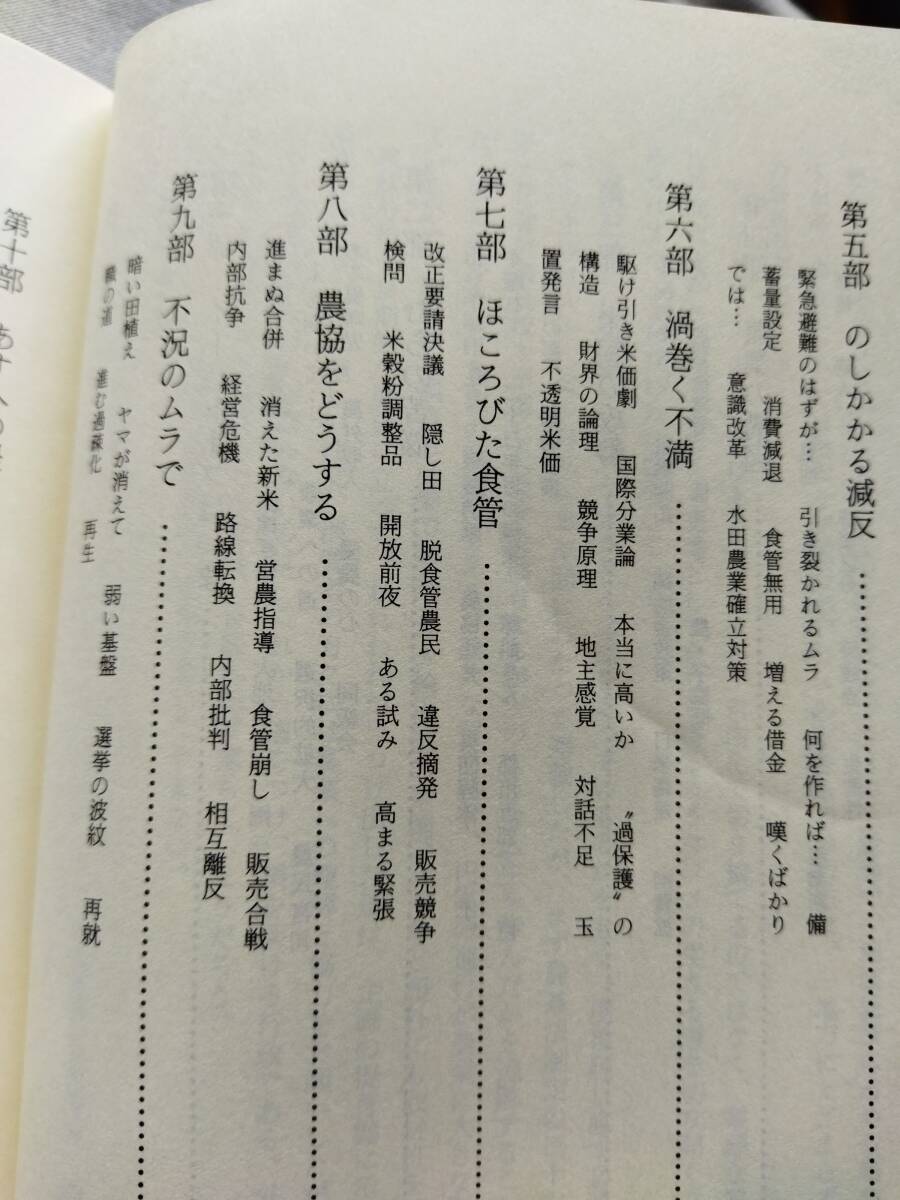 第五部 のしかかる減反
緊急避難のはずが… 引き裂かれるムラ 何を作れば… 備
蓄量設定 消費減退 食管無用 増える借金 嘆くばかり
では… 意識改革 水田農業確立対策
第六部 渦巻く不満
駆け引き米価劇 国際分業論 本当に高いか 〝過保護〟の
構造 財界の論理 競争原理 地主感覚 対話不足 玉
置発言 不透明米価
第七部 ほころびた食管
改正要請決議 隠し田 脱食管農民 違反摘発 販売競争
検問 米穀粉調整品 開放前夜 ある試み 高まる緊張
第八部 農協をどうする
進まぬ合併 消えた新米 営農指導 食管崩し 販売合戦
内部抗争 経営危機 路線転換 内部批判 相互離反
第九部 不況のムラで
暗い田植え ヤマが消えて 弱い基盤 選挙の波紋 再就
職の道 進む過疎化 再生
第十部 あすへの